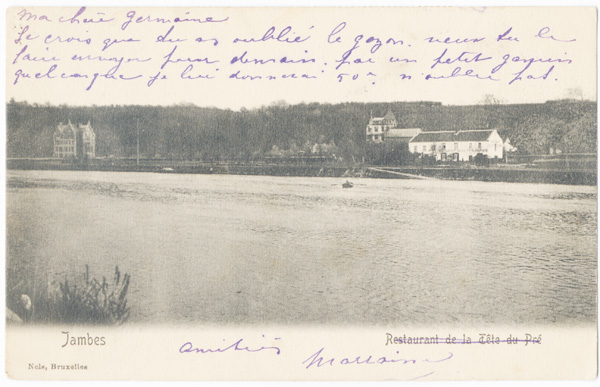 ma chère Germaine
Je crois que tu as oublié le gazon. veux tu le
faire envoyer pour demain. par un petit gamin
quelconque je lui donnerai 50c n'oublie pas.
Jambes
Restaurant de la Tête du Pré
amitiés
Marraine
Nels, Bruxelles